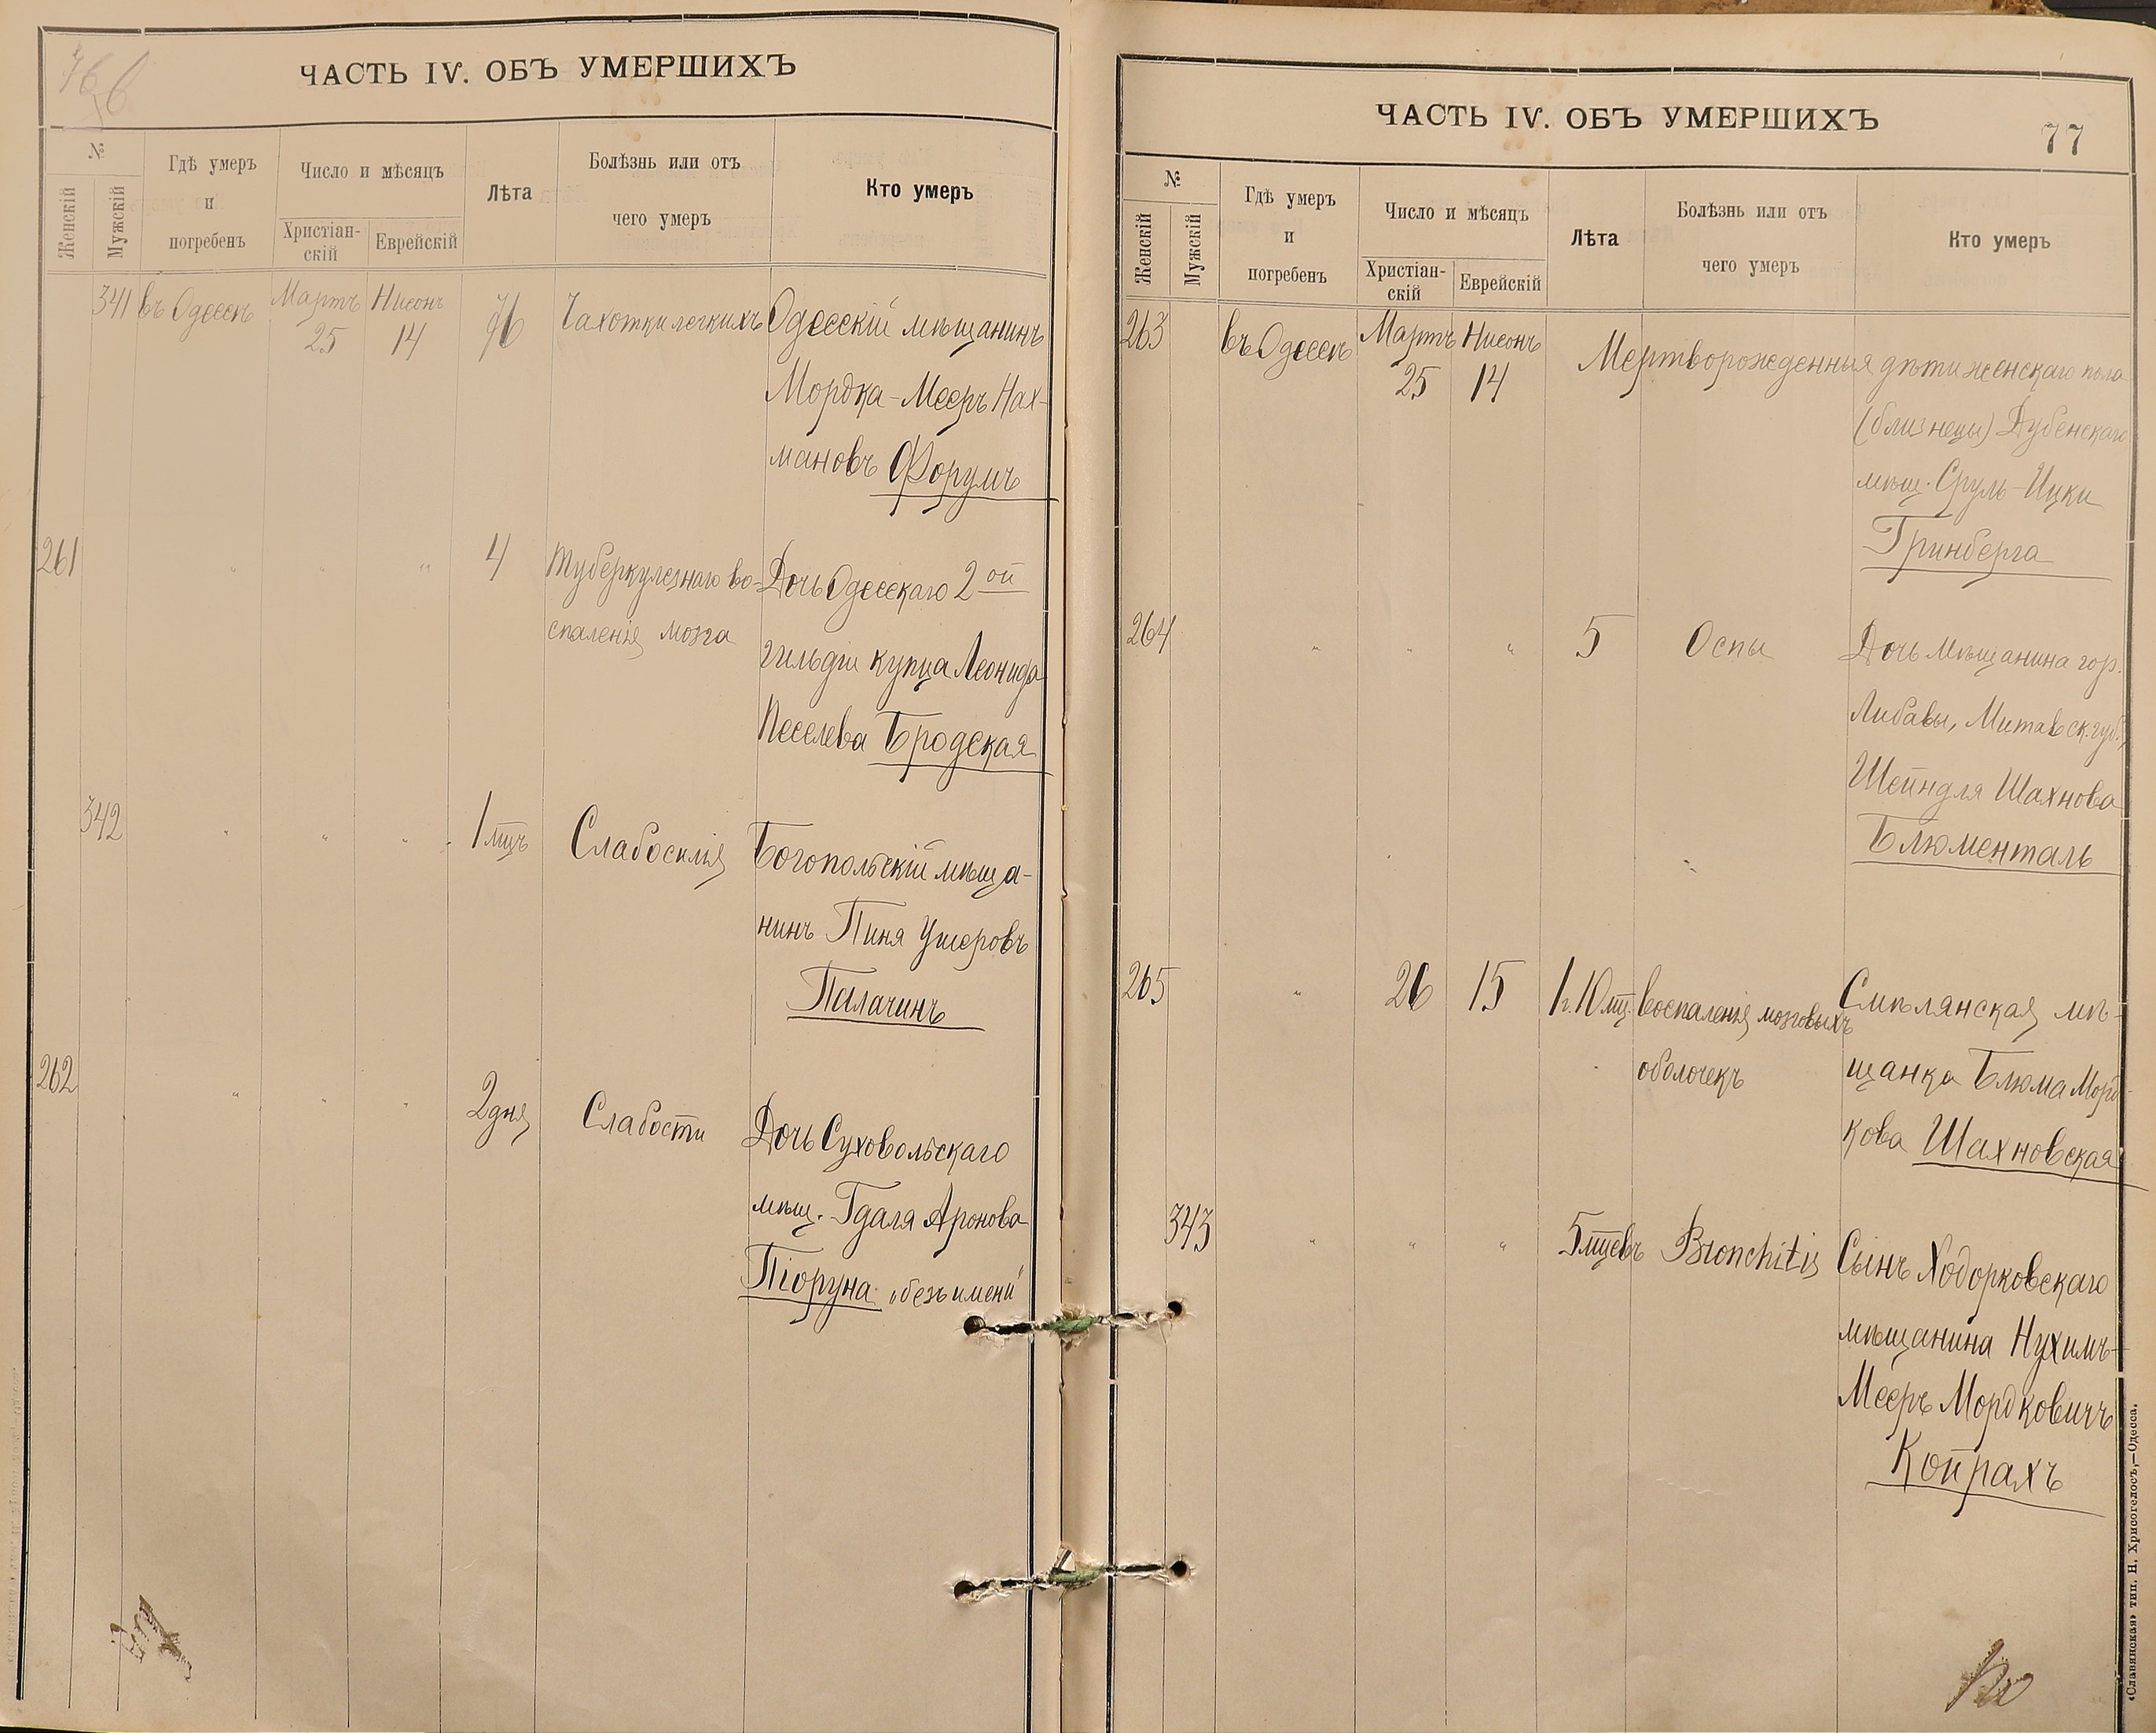 ЧАСТЬ IV. ОБЪ УМЕРШИХЪ
№
Женскій
Мужскій
Гдѣ умеръ
и
погребенъ
Число и мѣсяцъ
Христіан-
скій
Еврейскій
Лѣта
Болѣзнь или отъ
чего умеръ
Кто умеръ
341 въ Одессѣ Мартъ 25 Нисонъ 14 76 Чахотки легкихъ Одесскій мѣщанинъ
Мордка-Мееръ Нах-
мановъ Форумъ
261 " " " 4 Туберкулезнаго во- Дочь Одесскаго 2ой
спаленія мозга
гильдіи купца Леонида
Песелева Бродская
342 " " " 1 мцъ Слабосилія Богопольскій мѣща-
нинъ Пиня Ушеровъ
Палачинъ
262 " " " 2 дня Слабости Дочь Суховольскаго
мѣщ. Гдаля Аронова
Піоруна "безъ имени"
ЧАСТЬ IV. ОБЪ УМЕРШИХЪ
77
№
Женскій
Мужскій
Гдѣ умеръ
и
погребенъ
Число и мѣсяцъ
Христіан-
скій
Еврейскій
Лѣта
Болѣзнь или отъ
чего умеръ
Кто умеръ
263 въ Одессѣ Мартъ 25 Нисонъ 14 Мертворожденныя дѣти женскаго пола
(близнецы) Дубенскаго
мѣщ. Сруль-Ицки
Гринберга
264 " " " 5 Оспы Дочь мѣщанина гор.
Либавы, Митавск. губ.,
Шейндля Шахнова
Блюменталь
265 " 26 15 1 г. 10 мц. Воспаленія мозговыхъ Смѣлянская мѣ-
оболочекъ щанка Блюма Морд-
кова Шахновская
343 " " " 5 мцевъ Bronchitis Сынъ Ходорковскаго
мѣщанина Нухимъ-
Мееръ Мордковичъ
Койрахъ
«Славянская» тип. Н. Хрисогелосъ,—Одесса.